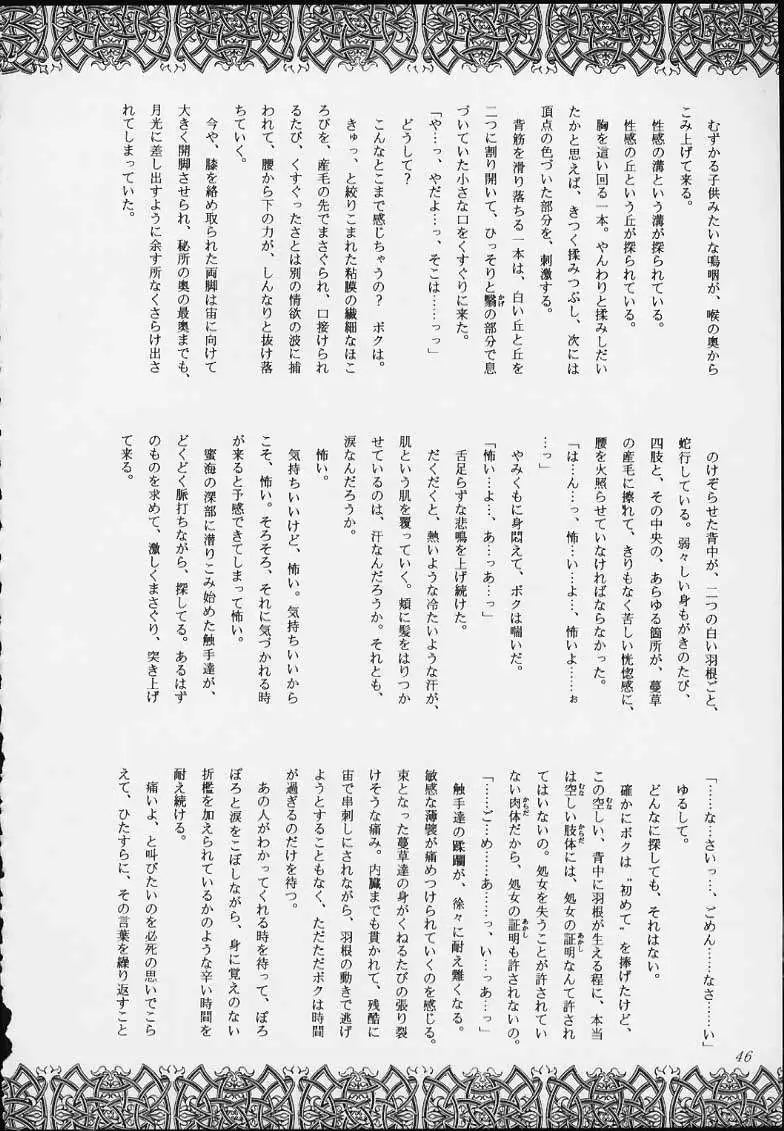 むずかる子供みたいな嗚咽が、喉の奥から
こみ上げて来る。
性感の溝という溝が探られている。
性感の丘という丘が探られている。
胸を這い回る一本。やんわりと揉みしだい
たかと思えば、きつく揉みつぶし、次には
頂点の色づいた部分を、刺激する。
背筋を滑り落ちる一本は、白い丘と丘を
二つに割り開いて、ひっそりと翳かげの部分で息
づいていた小さな口をくすぐりに来た。
「や…っ、やだよ…っ、そこは……っっ」
どうして?
こんなとこまで感じちゃうの? ボクは。
きゅっ、と絞りこまれた粘膜の繊細なほこ
ろびを、産毛の先でまさぐられ、口接けられ
るたび、くすぐったさとは別の情欲の波に捕
われて、腰から下の力が、しんなりと抜け落
ちていく。
今や、膝を絡め取られた両脚は宙に向けて
大きく開脚させられ、秘所の奥の最奥までも、
月光に差し出すように余す所なくさらけ出さ
れてしまっていた。
のけぞらせた背中が、二つの白い羽根ごと、
蛇行している。弱々しい身もがきのたび、
四肢と、その中央の、あらゆる箇所が、蔓草
の産毛に擦れて、きりもなく苦しい恍惚感に、
腰を火照らせていなければならなかった。
「は…ん…っ、怖…い…よ…、怖いよ……ぉ
…っ」
やみくもに身悶えて、ボクは喘いだ。
「怖い…よ…、あ…っあ…っ」
舌足らずな悲鳴を上げ続けた。
だくだくと、熱いような冷たいような汗が、
肌という肌を覆っていく。頬に髪をはりつか
せているのは、汗なんだろうか。それとも、
涙なんだろうか。
怖い。
気持ちいいけど、怖い。気持ちいいから
こそ、怖い。そろそろ、それに気づかれる時
が来ると予感できてしまって怖い。
蜜海の深部に潜りこみ始めた触手達が、
どくどく脈打ちながら、探してる。あるはず
のものを求めて、激しくまさぐり、突き上げ
て来る。
「……な…さいっ…、ごめん……なさ……い」
ゆるして。
どんなに探しても、それはない。
確かにボクは“初めて”を捧げたけど、
この空むなしい、背中に羽根が生える程に、本当
は空むなしい肢体からだには、処女の証明あかしなんて許され
てはいないの。処女を失うことが許されてい
ない肉体からだだから、処女の証明あかしも許されないの。
「……ご…め……あ……っ、い…っあ…っ」
触手達の蹂躙が、徐々に耐え難くなる。
敏感な薄襞が痛めつけられていくのを感じる。
束となった蔓草達の身がくねるたびの張り裂
けそうな痛み。内臓までも貫かれて、残酷に
宙で串刺しにされながら、羽根の動きで逃げ
ようとすることもなく、ただただボクは時間
が過ぎるのだけを待つ。
あの人がわかってくれる時を待って、ぽろ
ぽろと涙をこぼしながら、身に覚えのない
折檻を加えられているかのような辛い時間を
耐え続ける。
痛いよ、と叫びたいのを必死の思いでこら
えて、ひたすらに、その言葉を繰り返すこと
46